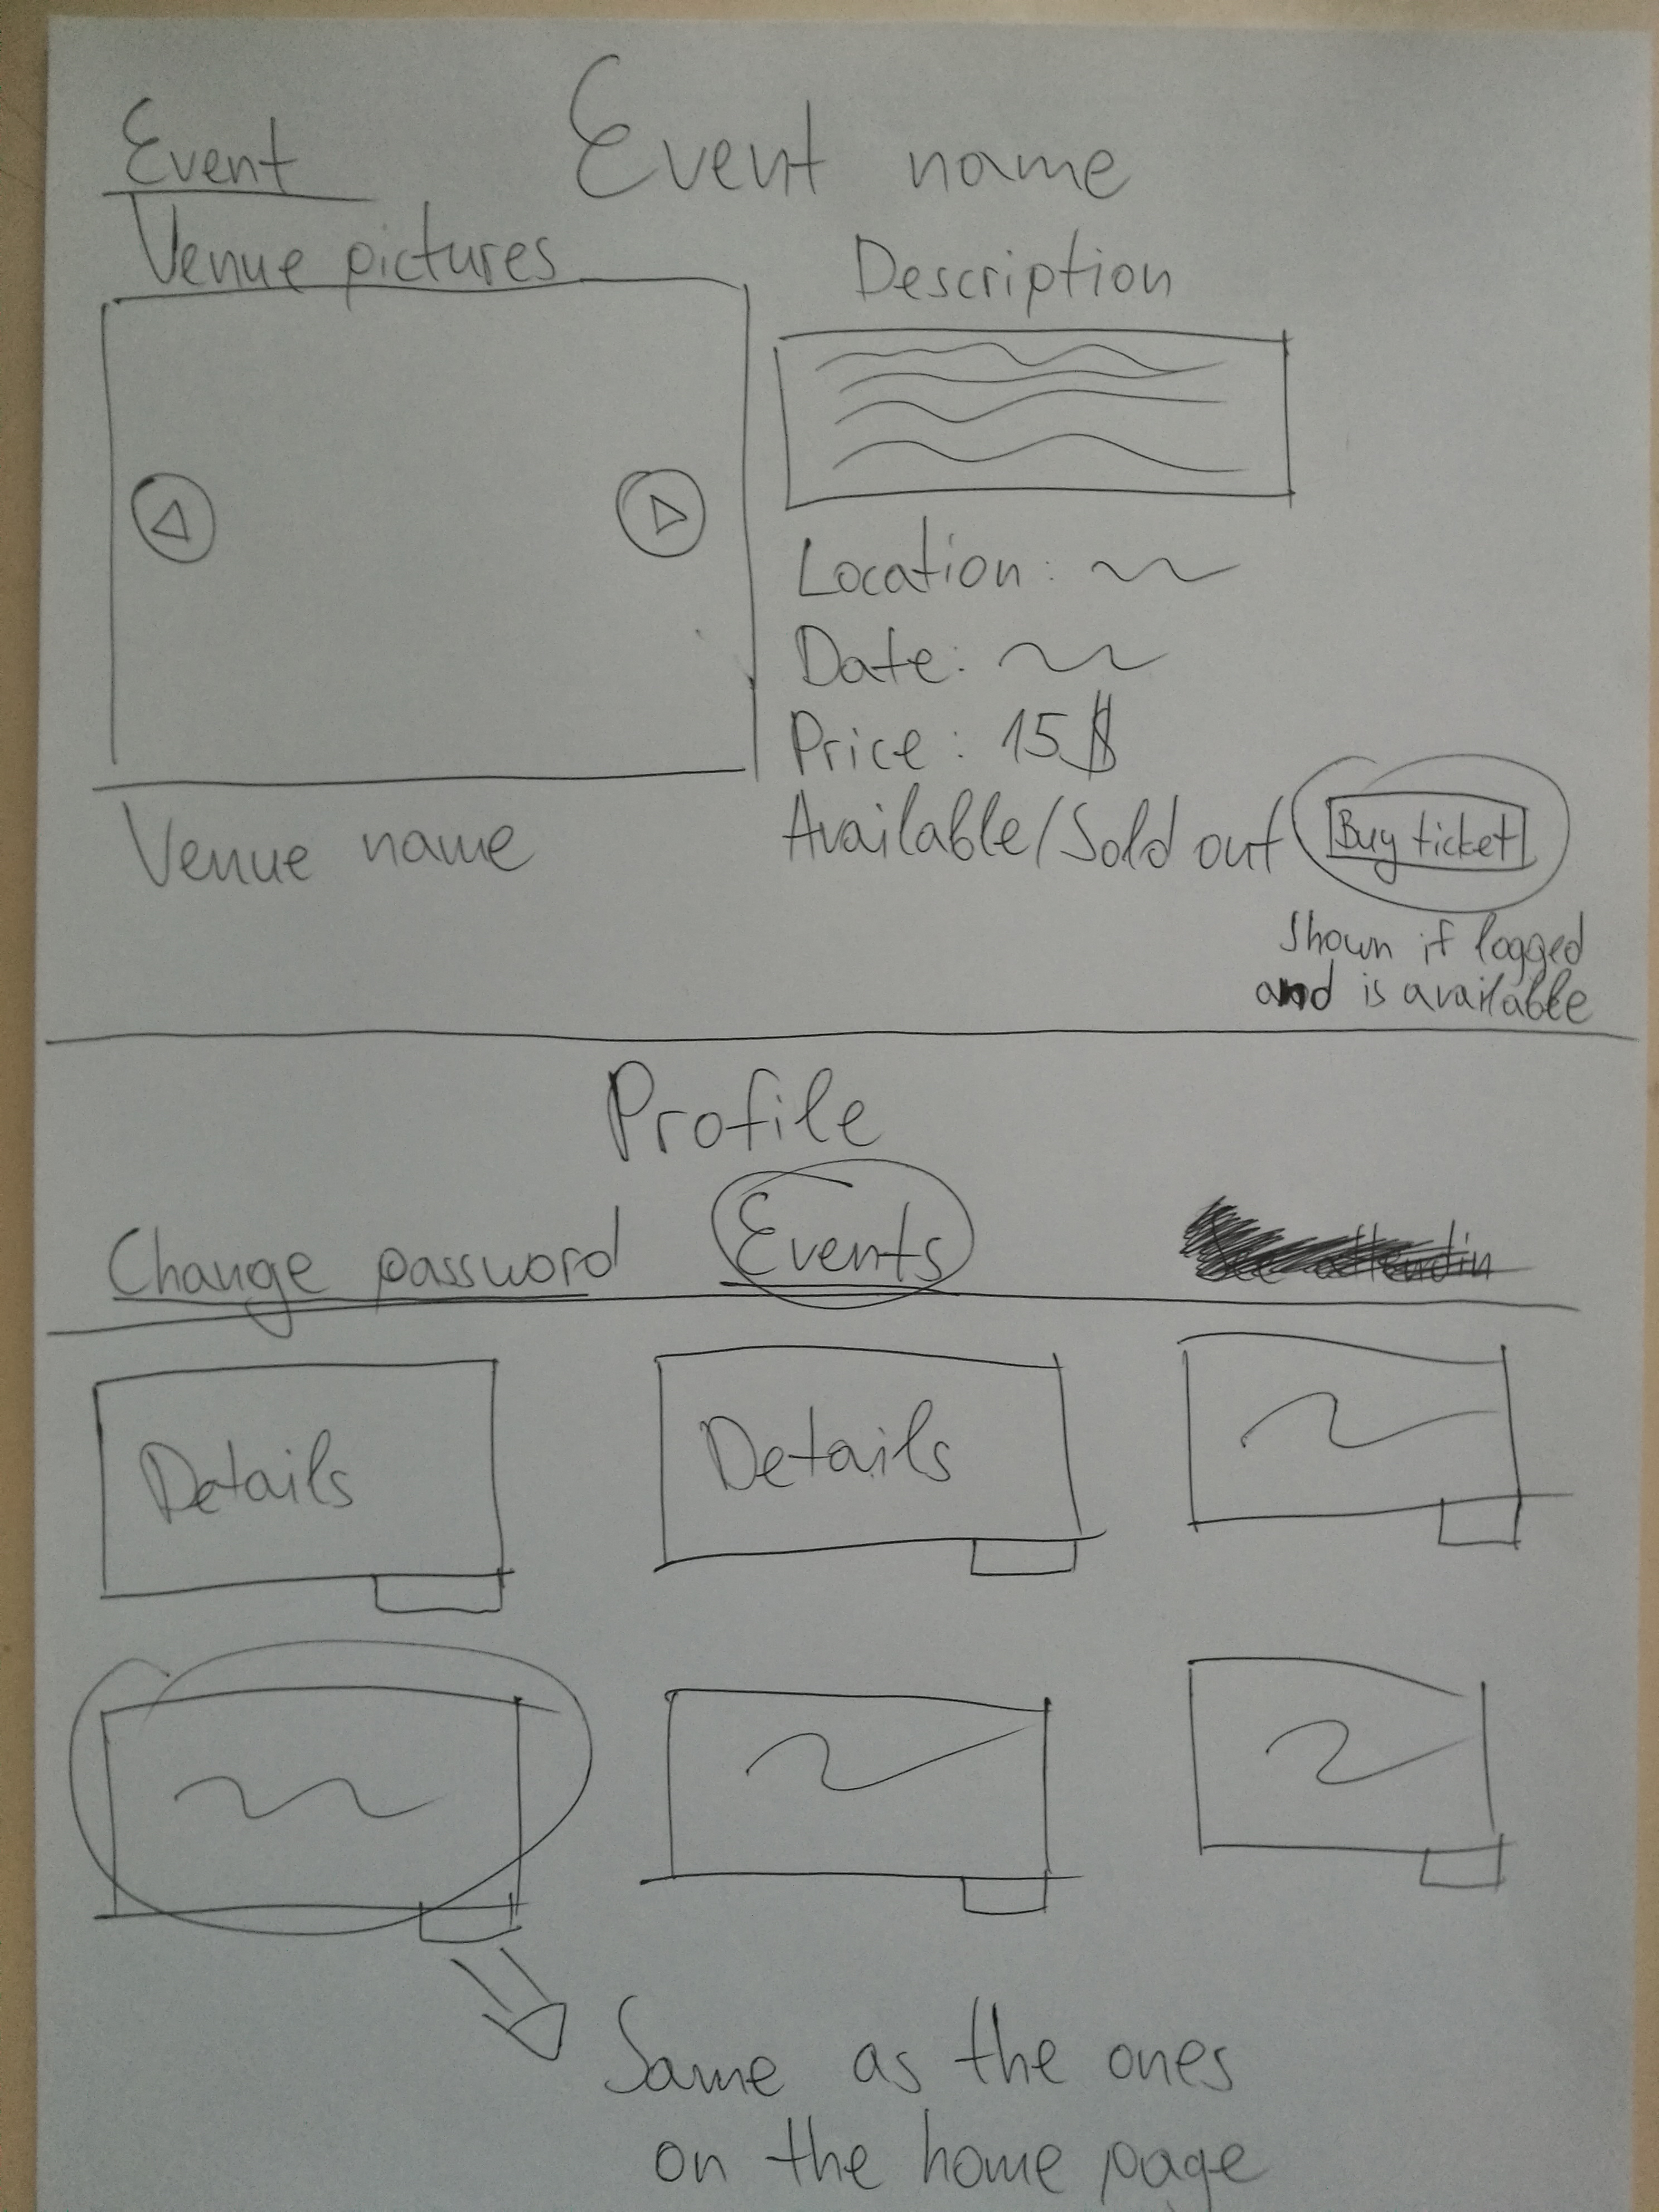 Event
Event name
Venue pictures
Description
Location:
Date:
Price: 15$
Available/Sold out
Buy ticket
Shown if logged
and is available
Venue name
Profile
Change password
Events
Details
Details
Same as the ones
on the home page